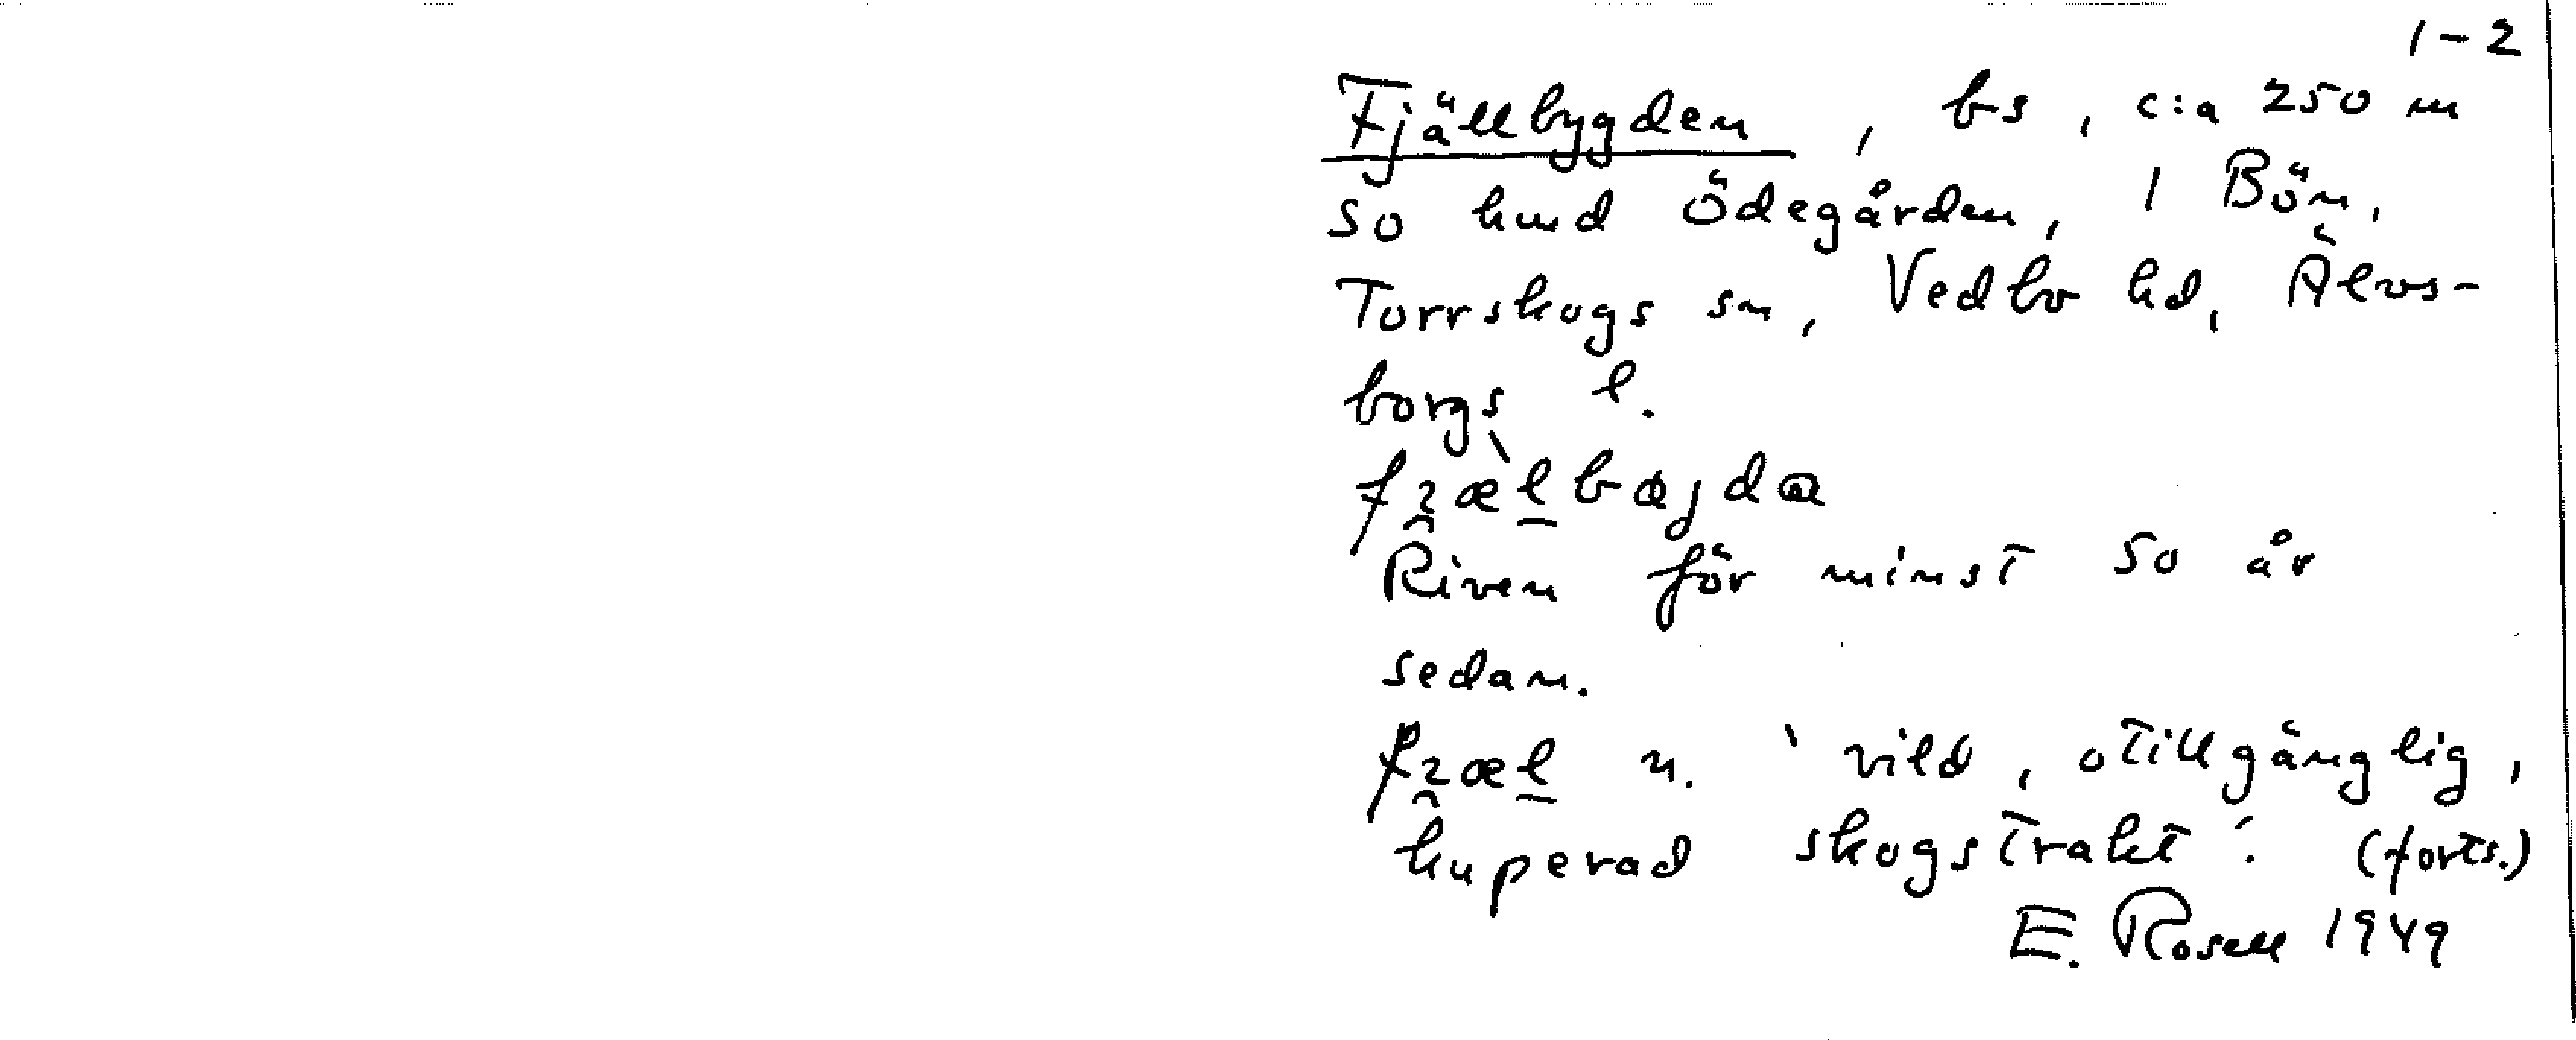 1-2
Fjällbygden, bs, c:a 250 m
SO hmd Ödegården, 1 Bön,
Torrskogs sn, Vedbo hd, Älvs-
borgs l.
Riven för minst 50 år
sedan.
n. 'vild, otillgänglig,
kuperad skogstrakt'. (forts.)
E. Rosell 1949